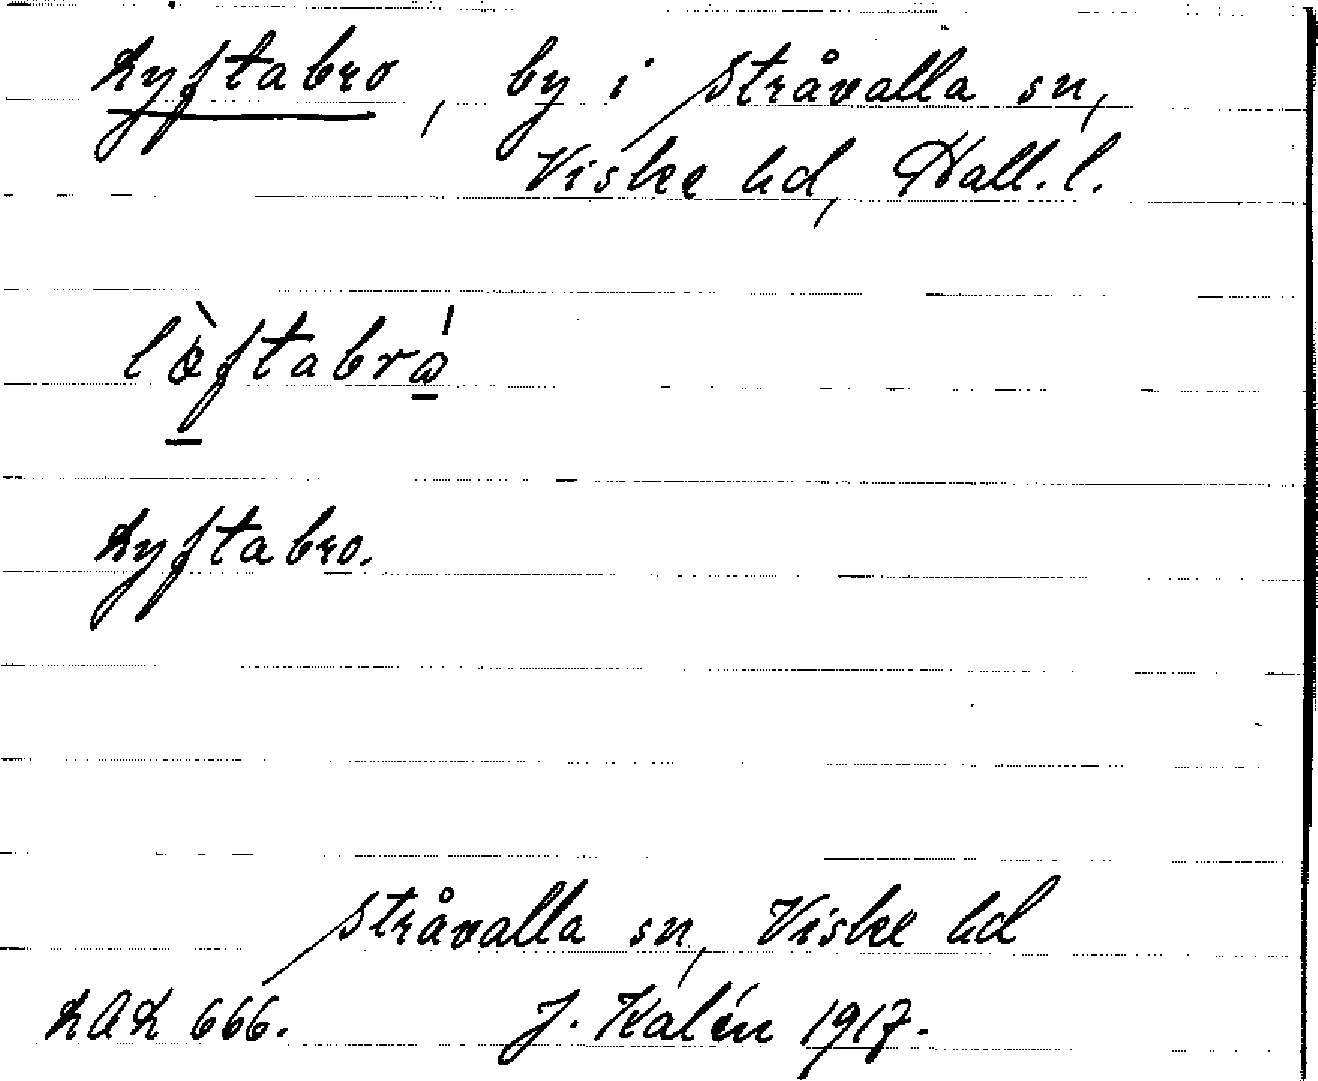 Lyftabro, by i Stråvalla sn,
Viske hd, Hall. l.
lö̀ftabrá̱
Lyftabro.
Stråvalla sn, Viske hd
LAL 666. J. Kalén 1917.